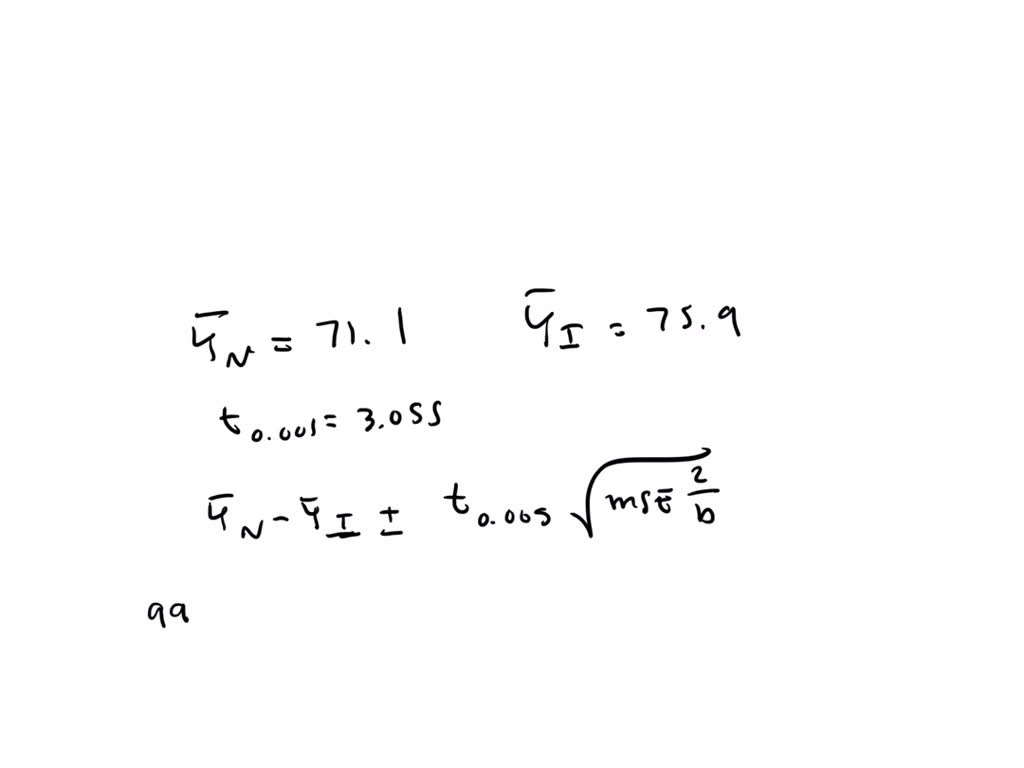 ȳ_N = 71.1 ȳ_I = 75.9
t_0.001 = 3.055
ȳ_N - ȳ_I ± t_0.005 √(MSE 2/b)
99